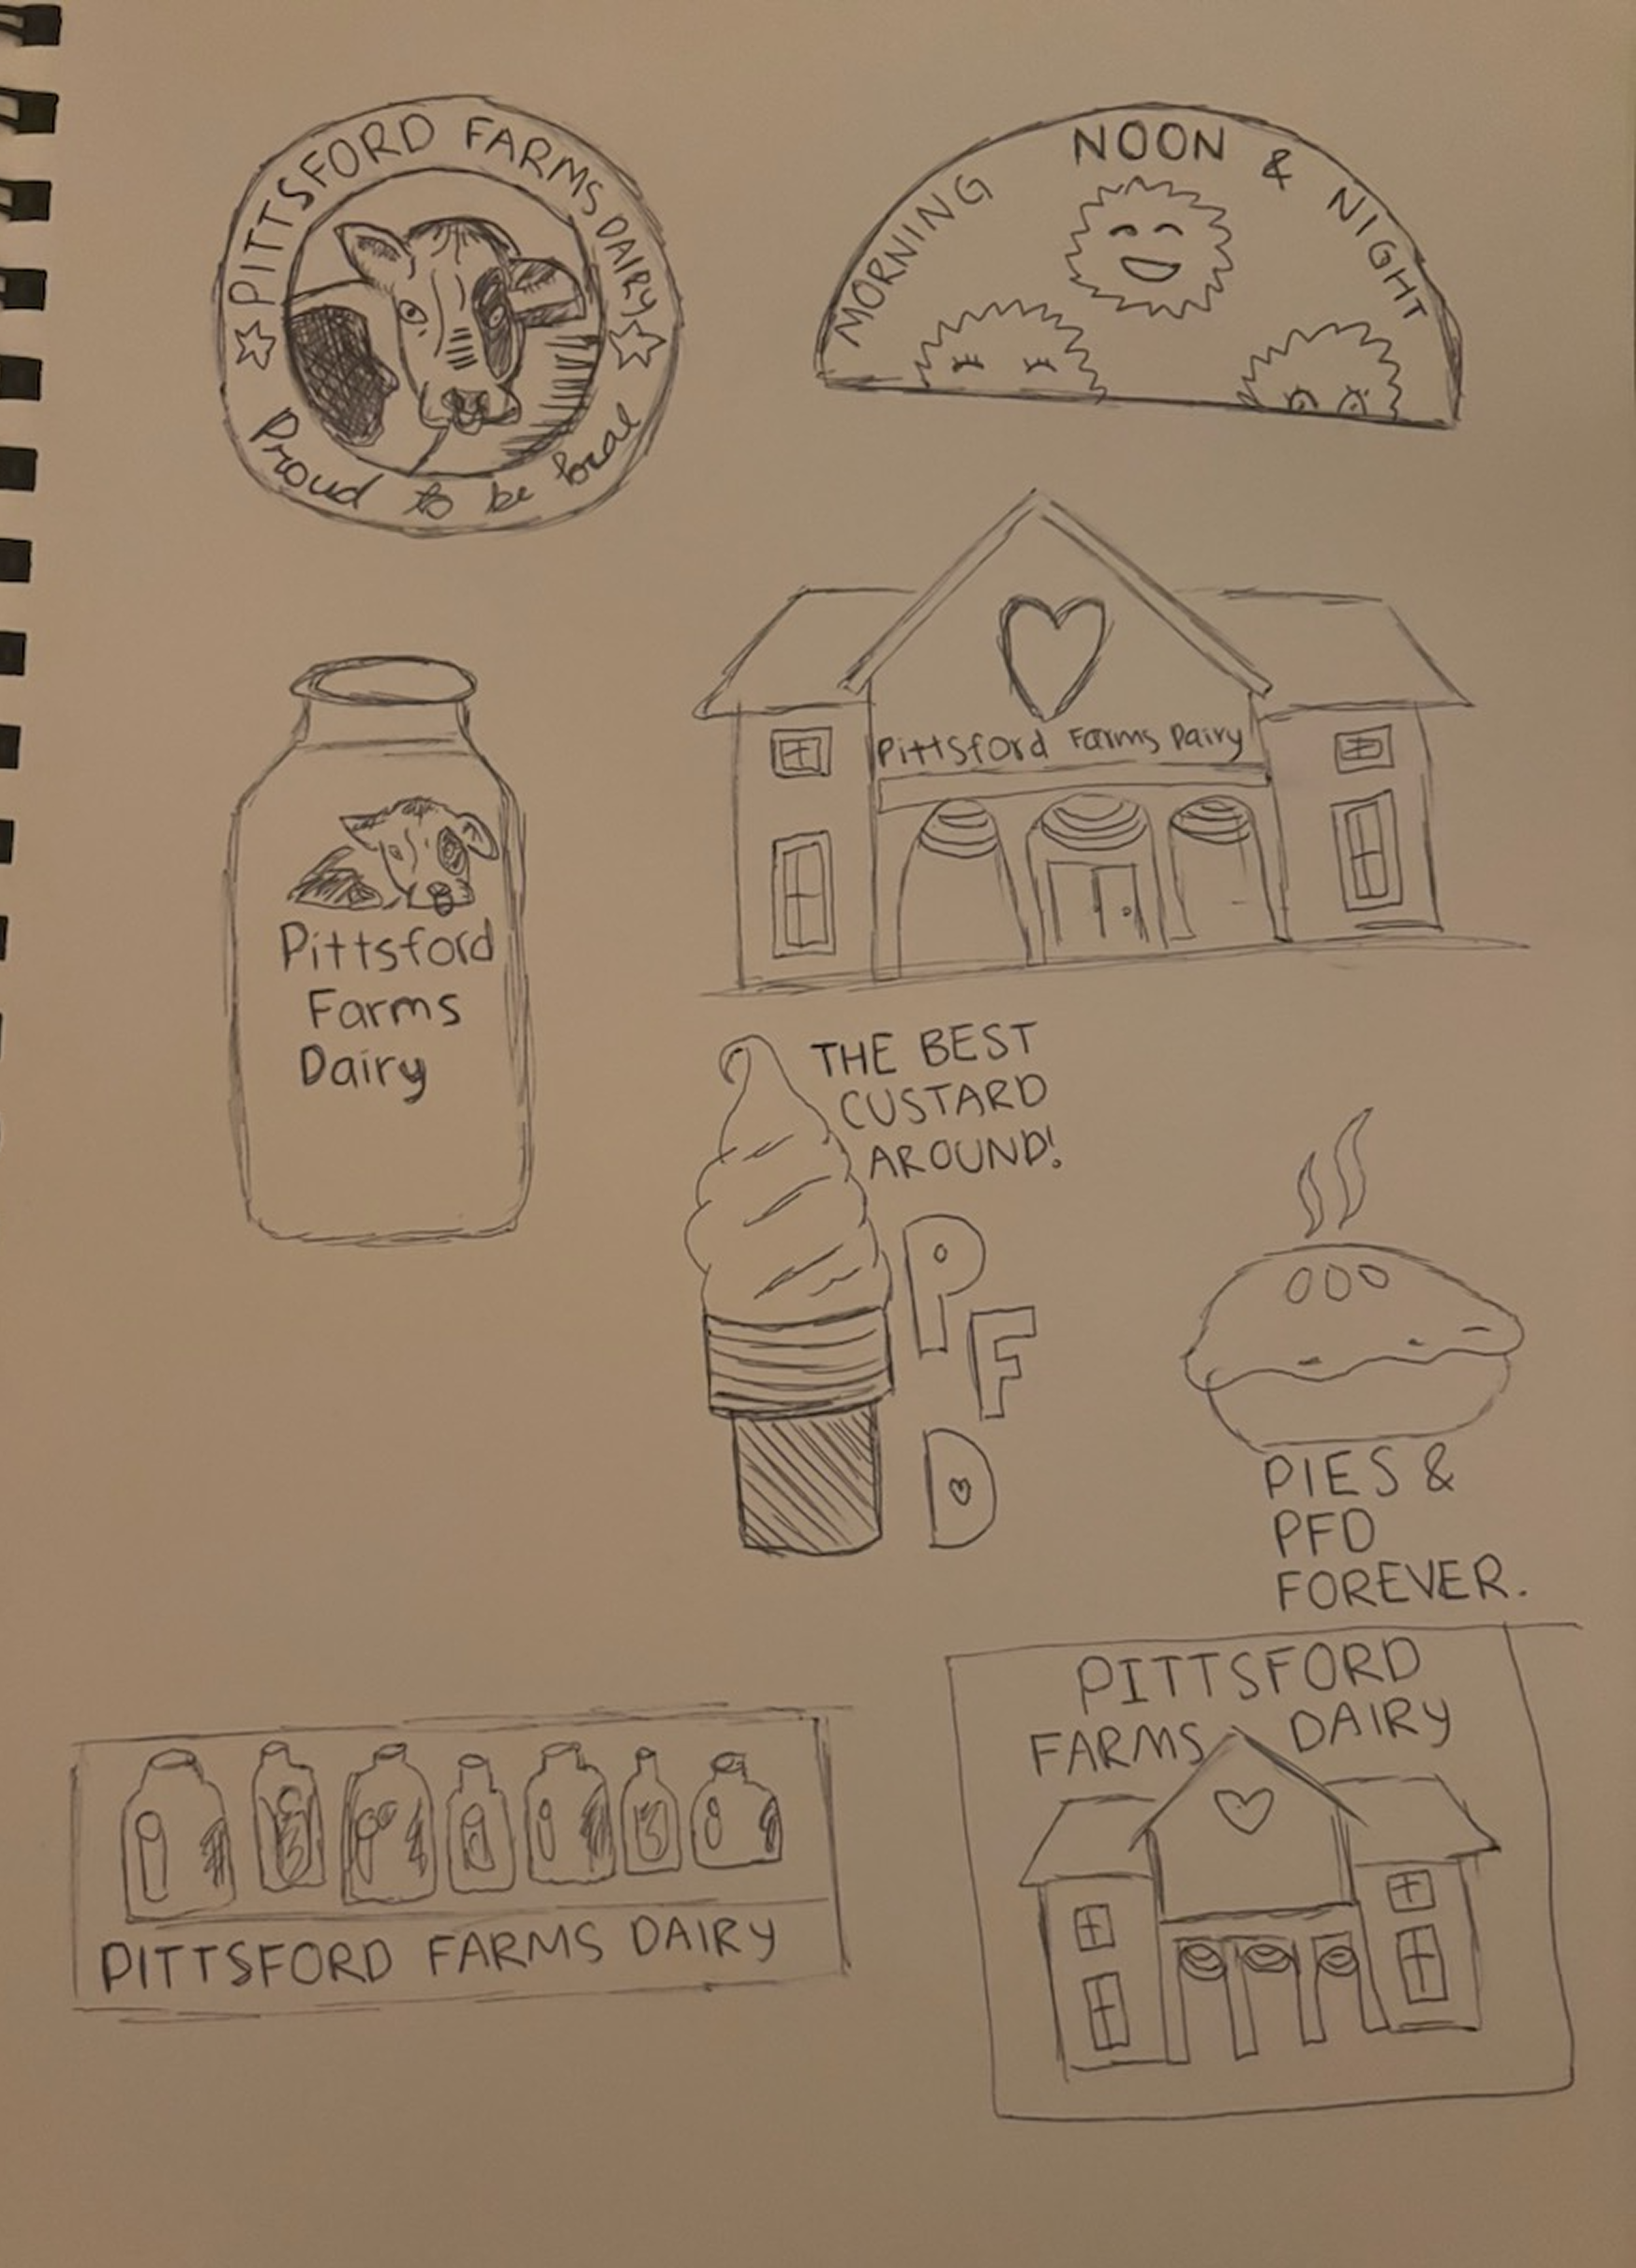 PITTSFORD FARMS DAIRY
Proud to be local
MORNING NOON & NIGHT
Pittsford Farms Dairy
Pittsford
Farms
Dairy
THE BEST
CUSTARD
AROUND!
P
F
D
PIES &
PFD
FOREVER.
PITTSFORD FARMS DAIRY
PITTSFORD
FARMS DAIRY